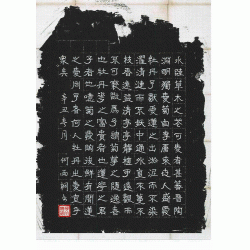 水陸草木之花可愛者甚蕃晉陶
淵明獨愛菊自李唐來世人盛愛
牡丹予獨愛蓮之出淤泥而不染
濯清漣而不妖中通外直不蔓不
枝香遠益清亭亭淨植可遠觀而
不可褻翫焉予謂菊花之隱逸者
也牡丹花之富貴者也蓮花之君
子者也噫菊之愛陶後鮮有聞蓮
之愛同予者何人牡丹之愛宜乎
衆矣 辛丑